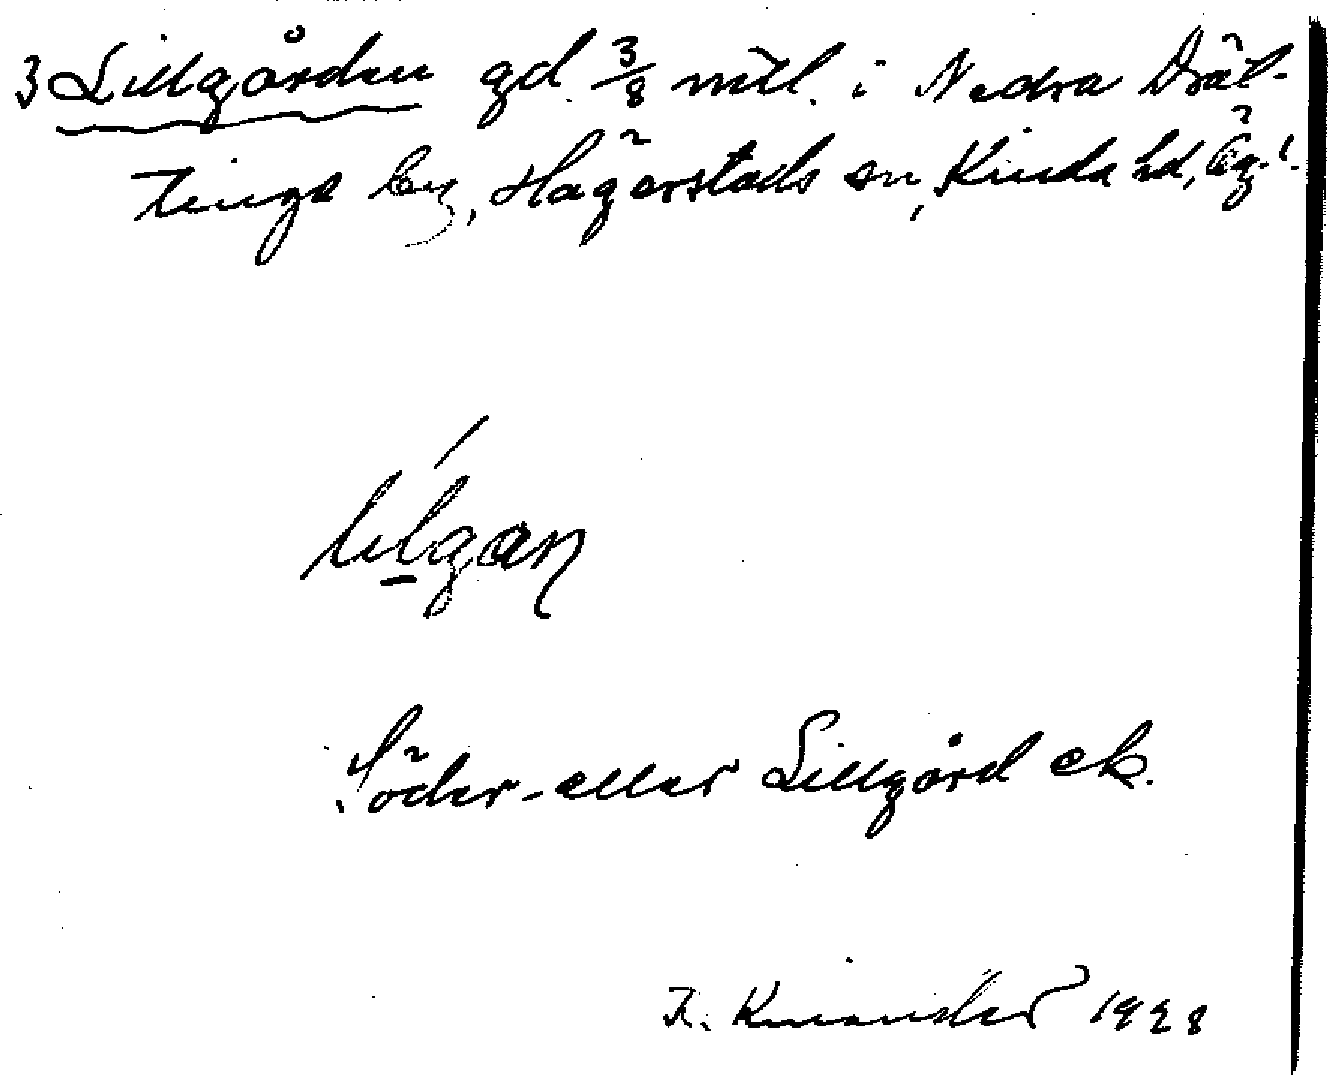 3 Lillgården gd. 3/8 mtl. i Nedra Drät-
tinge by, Hägerstads sn, Kinda hd, Ög.l.
lílgan
Söder- eller Lillgård ek.
K. 1928